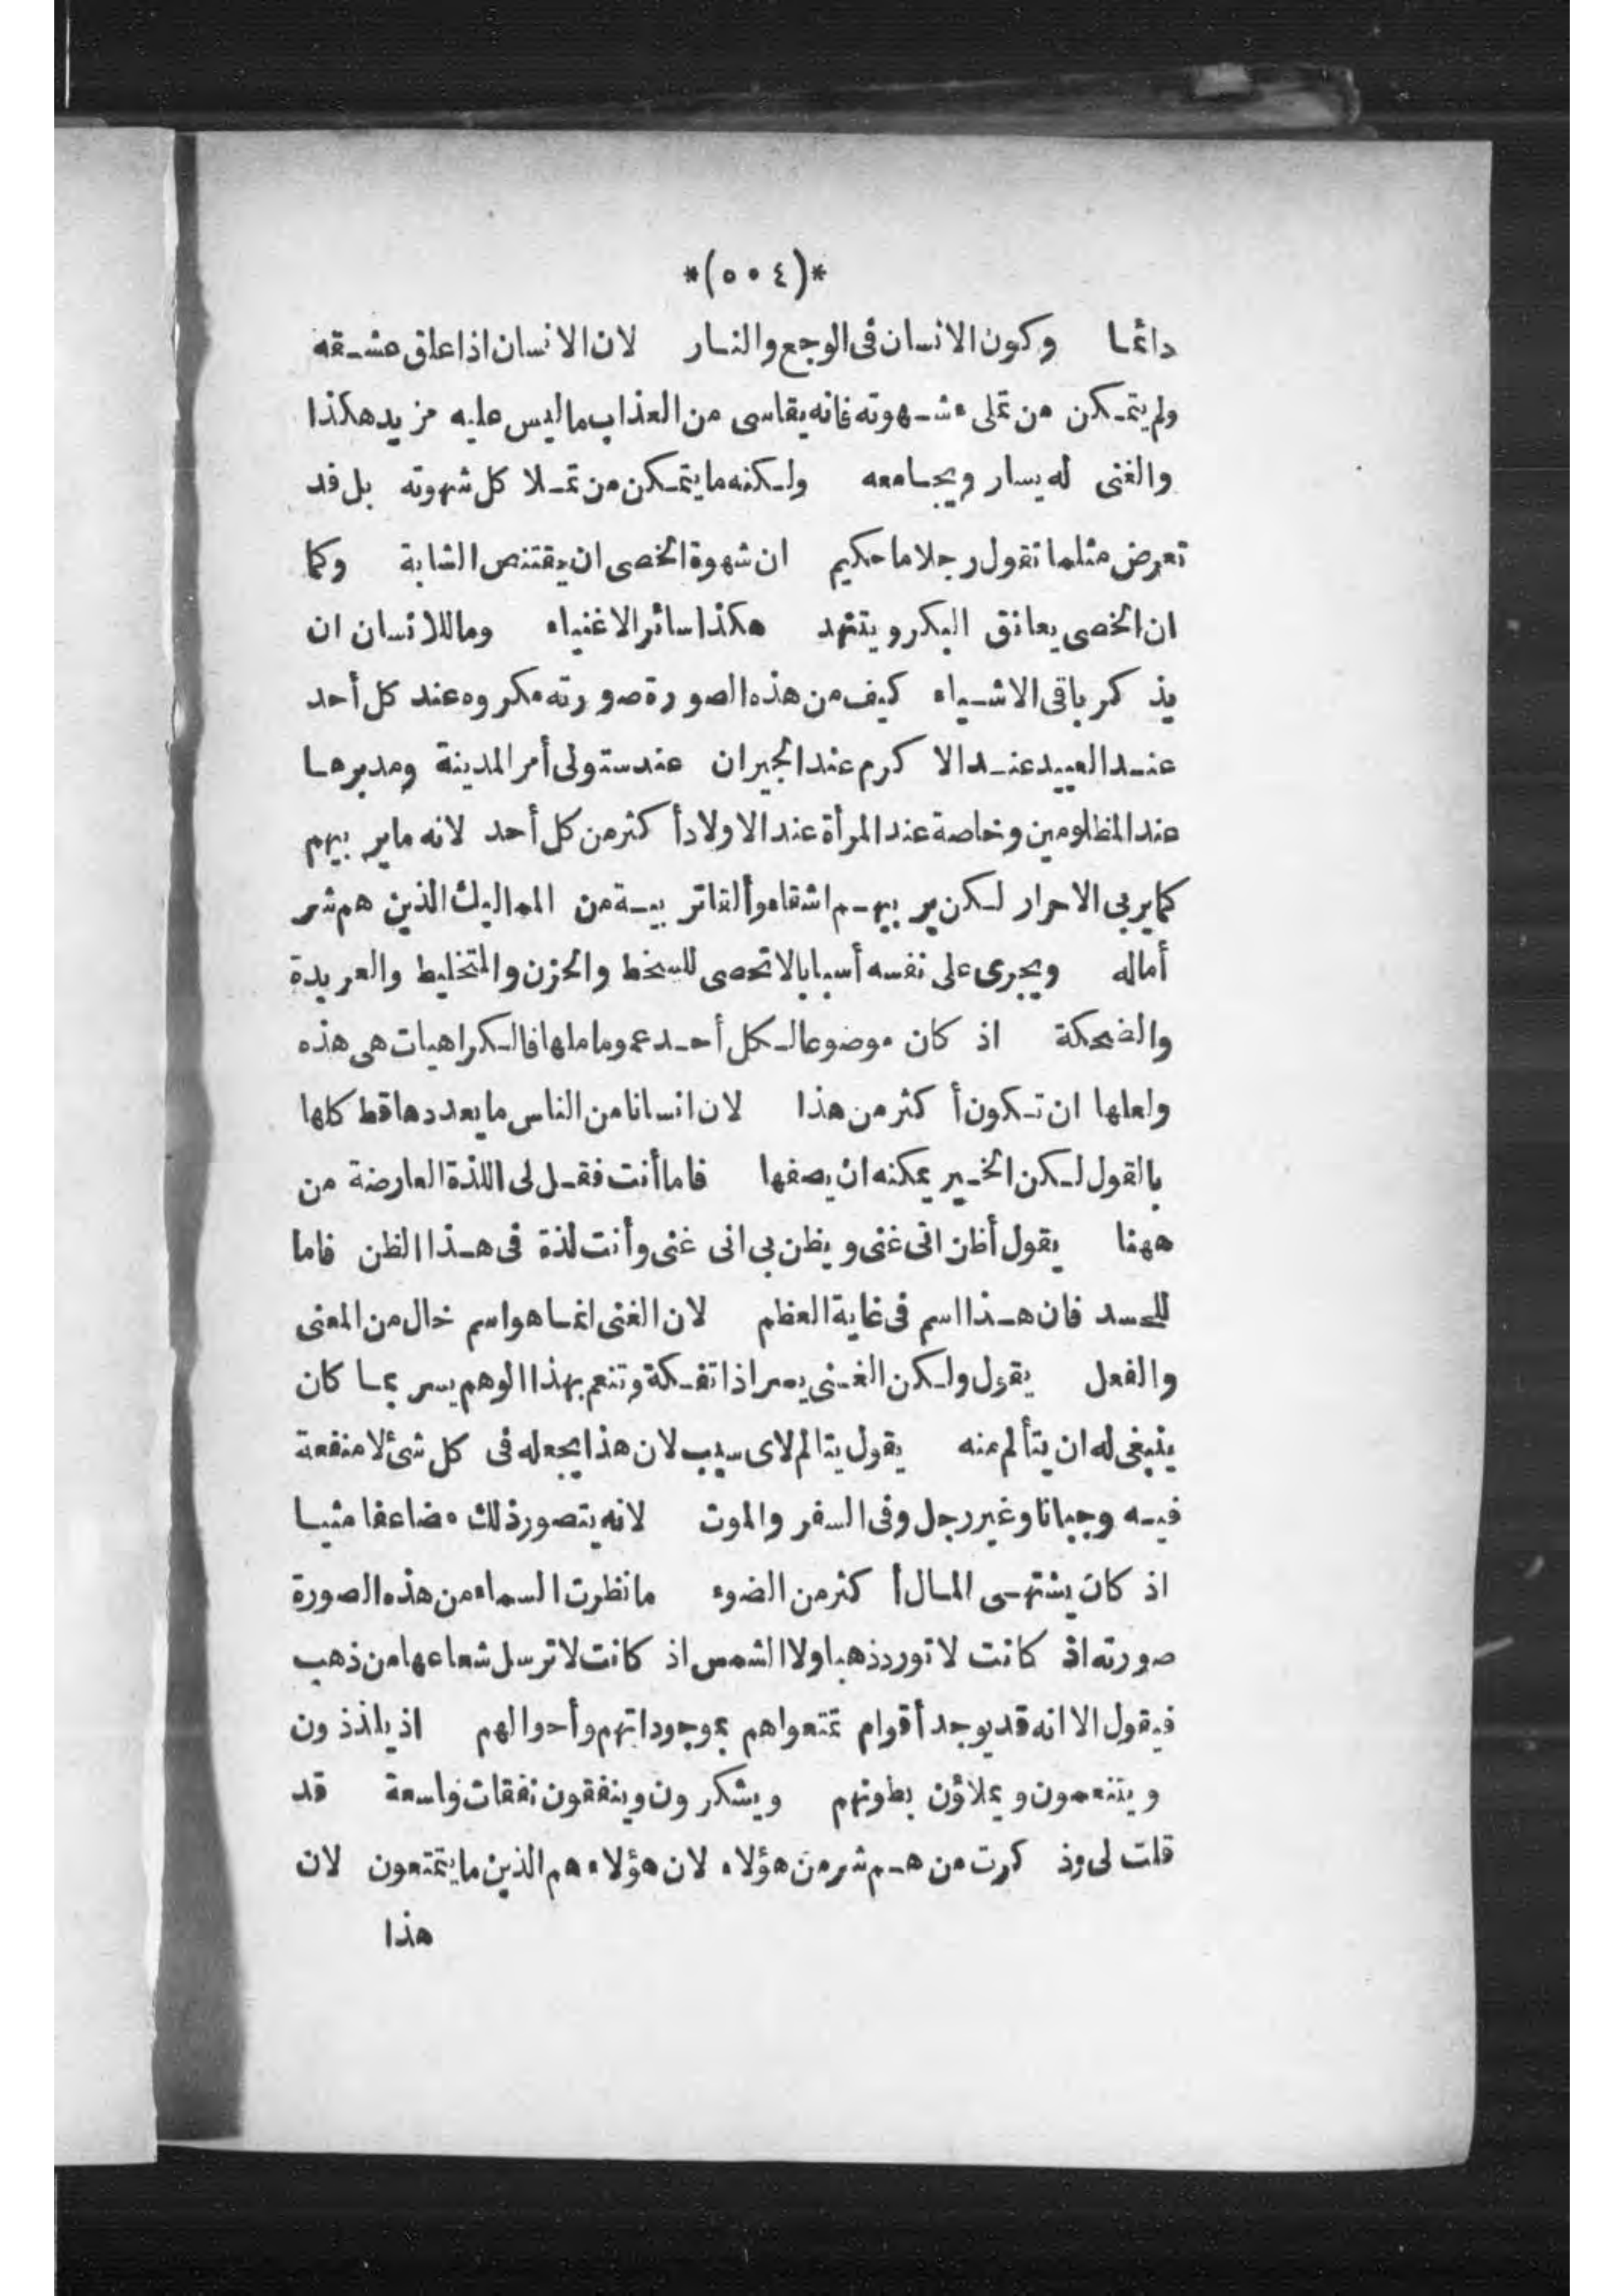 *(٥٠٤)*
دائما وكون الانسان فى الوجع والنار لان الانسان اذا علق عشقه
ولم يتمكن من تملى شهوته فانه يقاسى من العذاب ما ليس عليه مزيد هكذا
والغنى له يسار ويجامعه ولكنه ما يتمكن من تملا كل شهوته بل قد
تعرض مثلما نقول رجلا ما حكيم ان شهوة الخصى ان يقتنص الشابة وكما
ان الخصى يعانق البكر ويتنهد هكذا سائر الاغنياء وما للانسان ان
يذكر باقى الاشياء كيف من هذه الصورة صورته مكروه عند كل أحد
عند العبيد عند الاكرم عند الجيران عند ستولى أمر المدينة ومدبرها
عند المظلومين وخاصة عند المرأة عند الاولاد أكثر من كل أحد لانه ما يربيهم
كما يربى الاحرار لكن يربيهم اشقاء وألقاتربية من المماليك الذين هم شر
أماله ويجرى على نفسه أسبابا لا تحصى للسخط والحزن والتخليط والعربدة
والضحكة اذ كان موضوعا لكل أحد عموما ما لها فالكراهيات هى هذه
ولعلها ان تكون أكثر من هذا لان انسانا من الناس ما يعددها قط كلها
بالقول لكن الخبير يمكنه ان يصفها فاما أنت فقل لى اللذة العارضة من
ههنا يقول أظن انى غنى ويظن بى انى غنى وأنت لذة فى هذا الظن فاما
للحسد فان هذا اسم فى غاية العظم لان الغنى انما هو اسم خال من المعنى
والفعل يقول ولكن الغنى يصر اذا تفكة وتنعم بهذا الوهم يسر بما كان
ينبغى له ان يتألم منه يقول يتالم لاى سبب لان هذا يجعله فى كل شئ لا منفعة
فيه وجبانا وغير رجل وفى السفر والموت لانه يتصور ذلك مضاعفا مثيا
اذ كان يشتهى المال أكثر من الضوء ما نظرت السماء من هذه الصورة
صورته اذ كانت لا تورد ذهبا ولا الشمس اذ كانت لا ترسل شعاعها من ذهب
فيقول الا انه قد يوجد أقوام تمتعوا هم بموجوداتهم وأحوالهم اذ يلذذون
ويتنعمون ويملاؤن بطونهم ويشكرون وينفقون نفقات واسعة قد
قلت لى وذكرت من هم شر من هؤلاء لان هؤلاء هم الذين ما يتمتعون لان
هذا